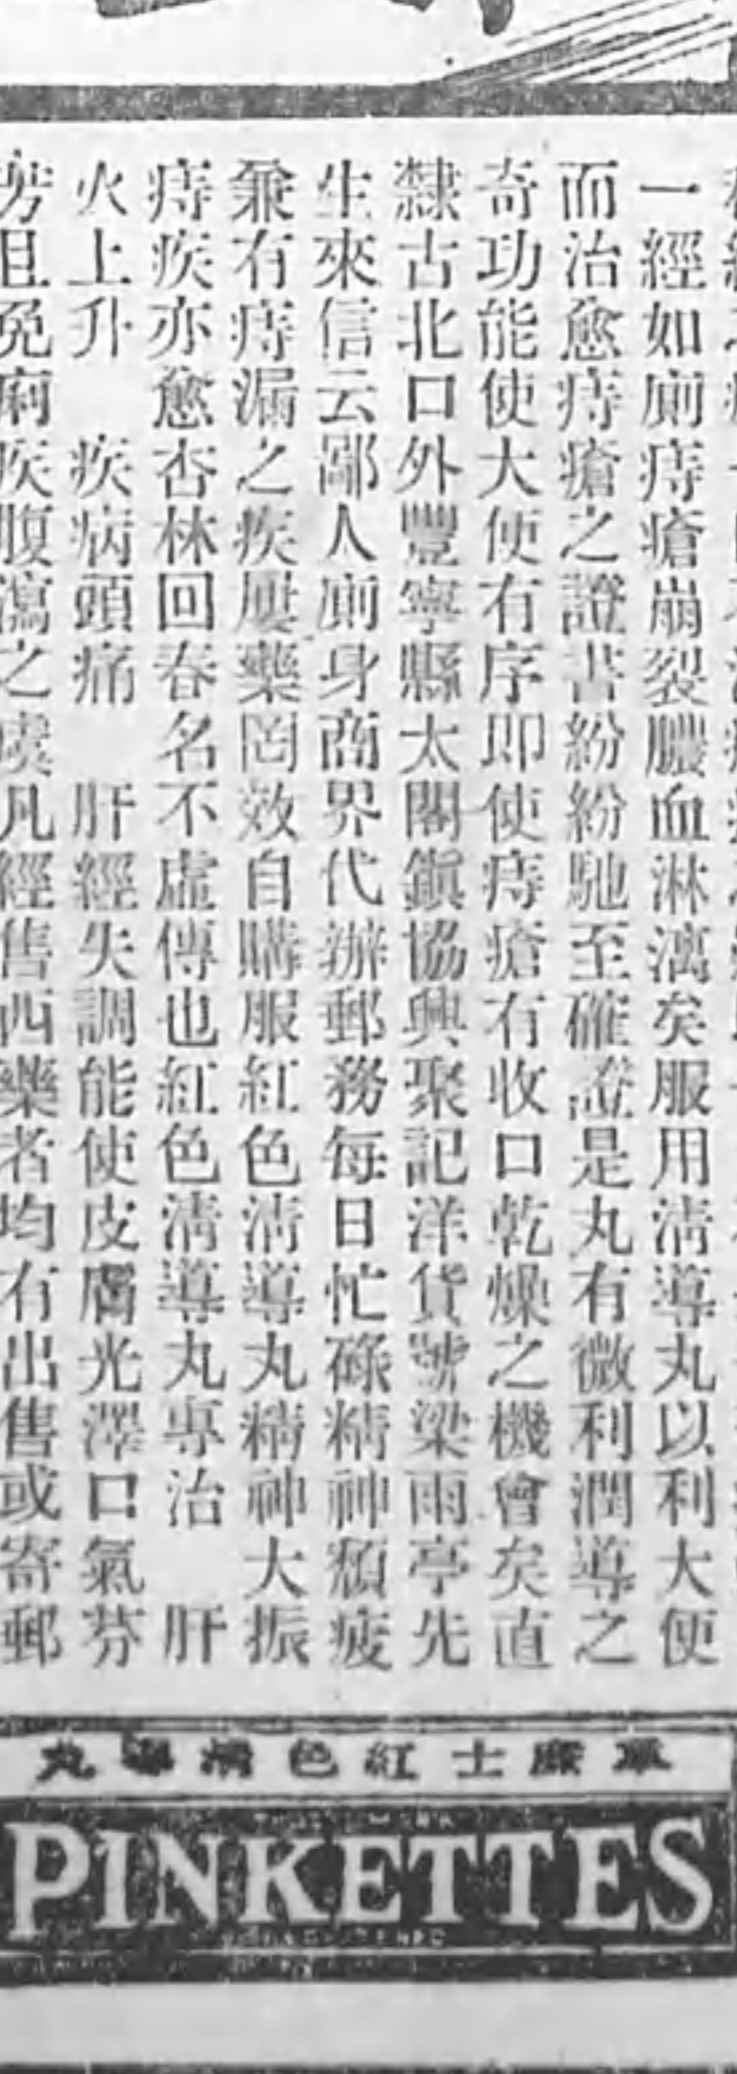 一經如廁痔瘡崩裂膿血淋漓矣服用清導丸以利大便
而治愈痔瘡之證書紛紛馳至確證是丸有微利潤導之
奇功能使大便有序即使痔瘡有收口乾燥之機會矣直
隸古北口外豐寧縣太閣鎭協興聚記洋貨號梁雨亭先
生來信云鄙人廁身商界代辦郵務每日忙碌精神頹疲
兼有痔漏之疾屢藥罔效自購服紅色清導丸精神大振
痔疾亦愈杏林回春名不虛傳也紅色清導丸專治 肝
火上升 疾病頭痛 肝經失調能使皮膚光澤口氣芬
芳且免痢疾腹瀉之虞凡經售西藥者均有出售或寄郵
韋廉士紅色清導丸
PINKETTES